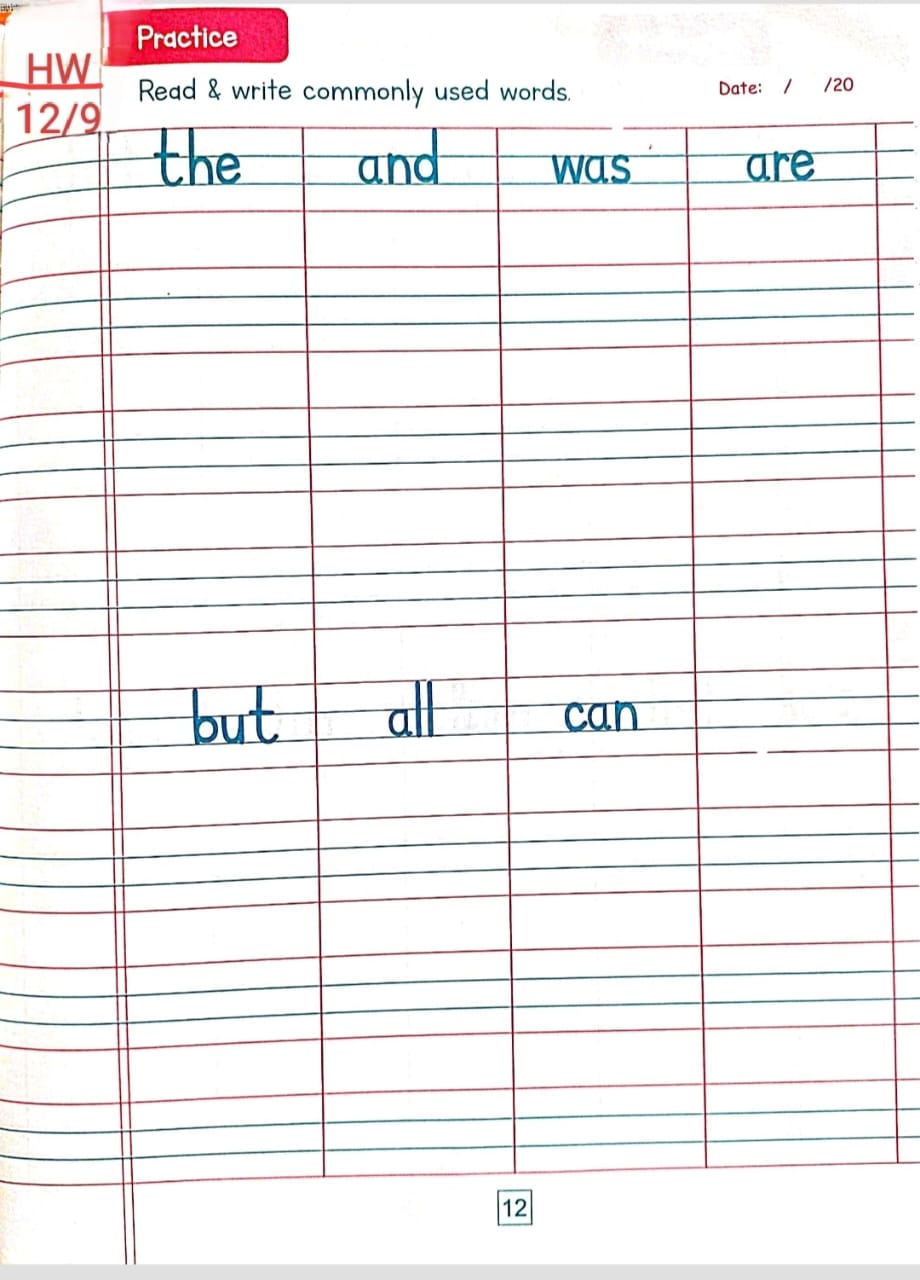 Practice
HW
12/9
Read & write commonly used words.
Date: / /20
the and was are
but all can
12